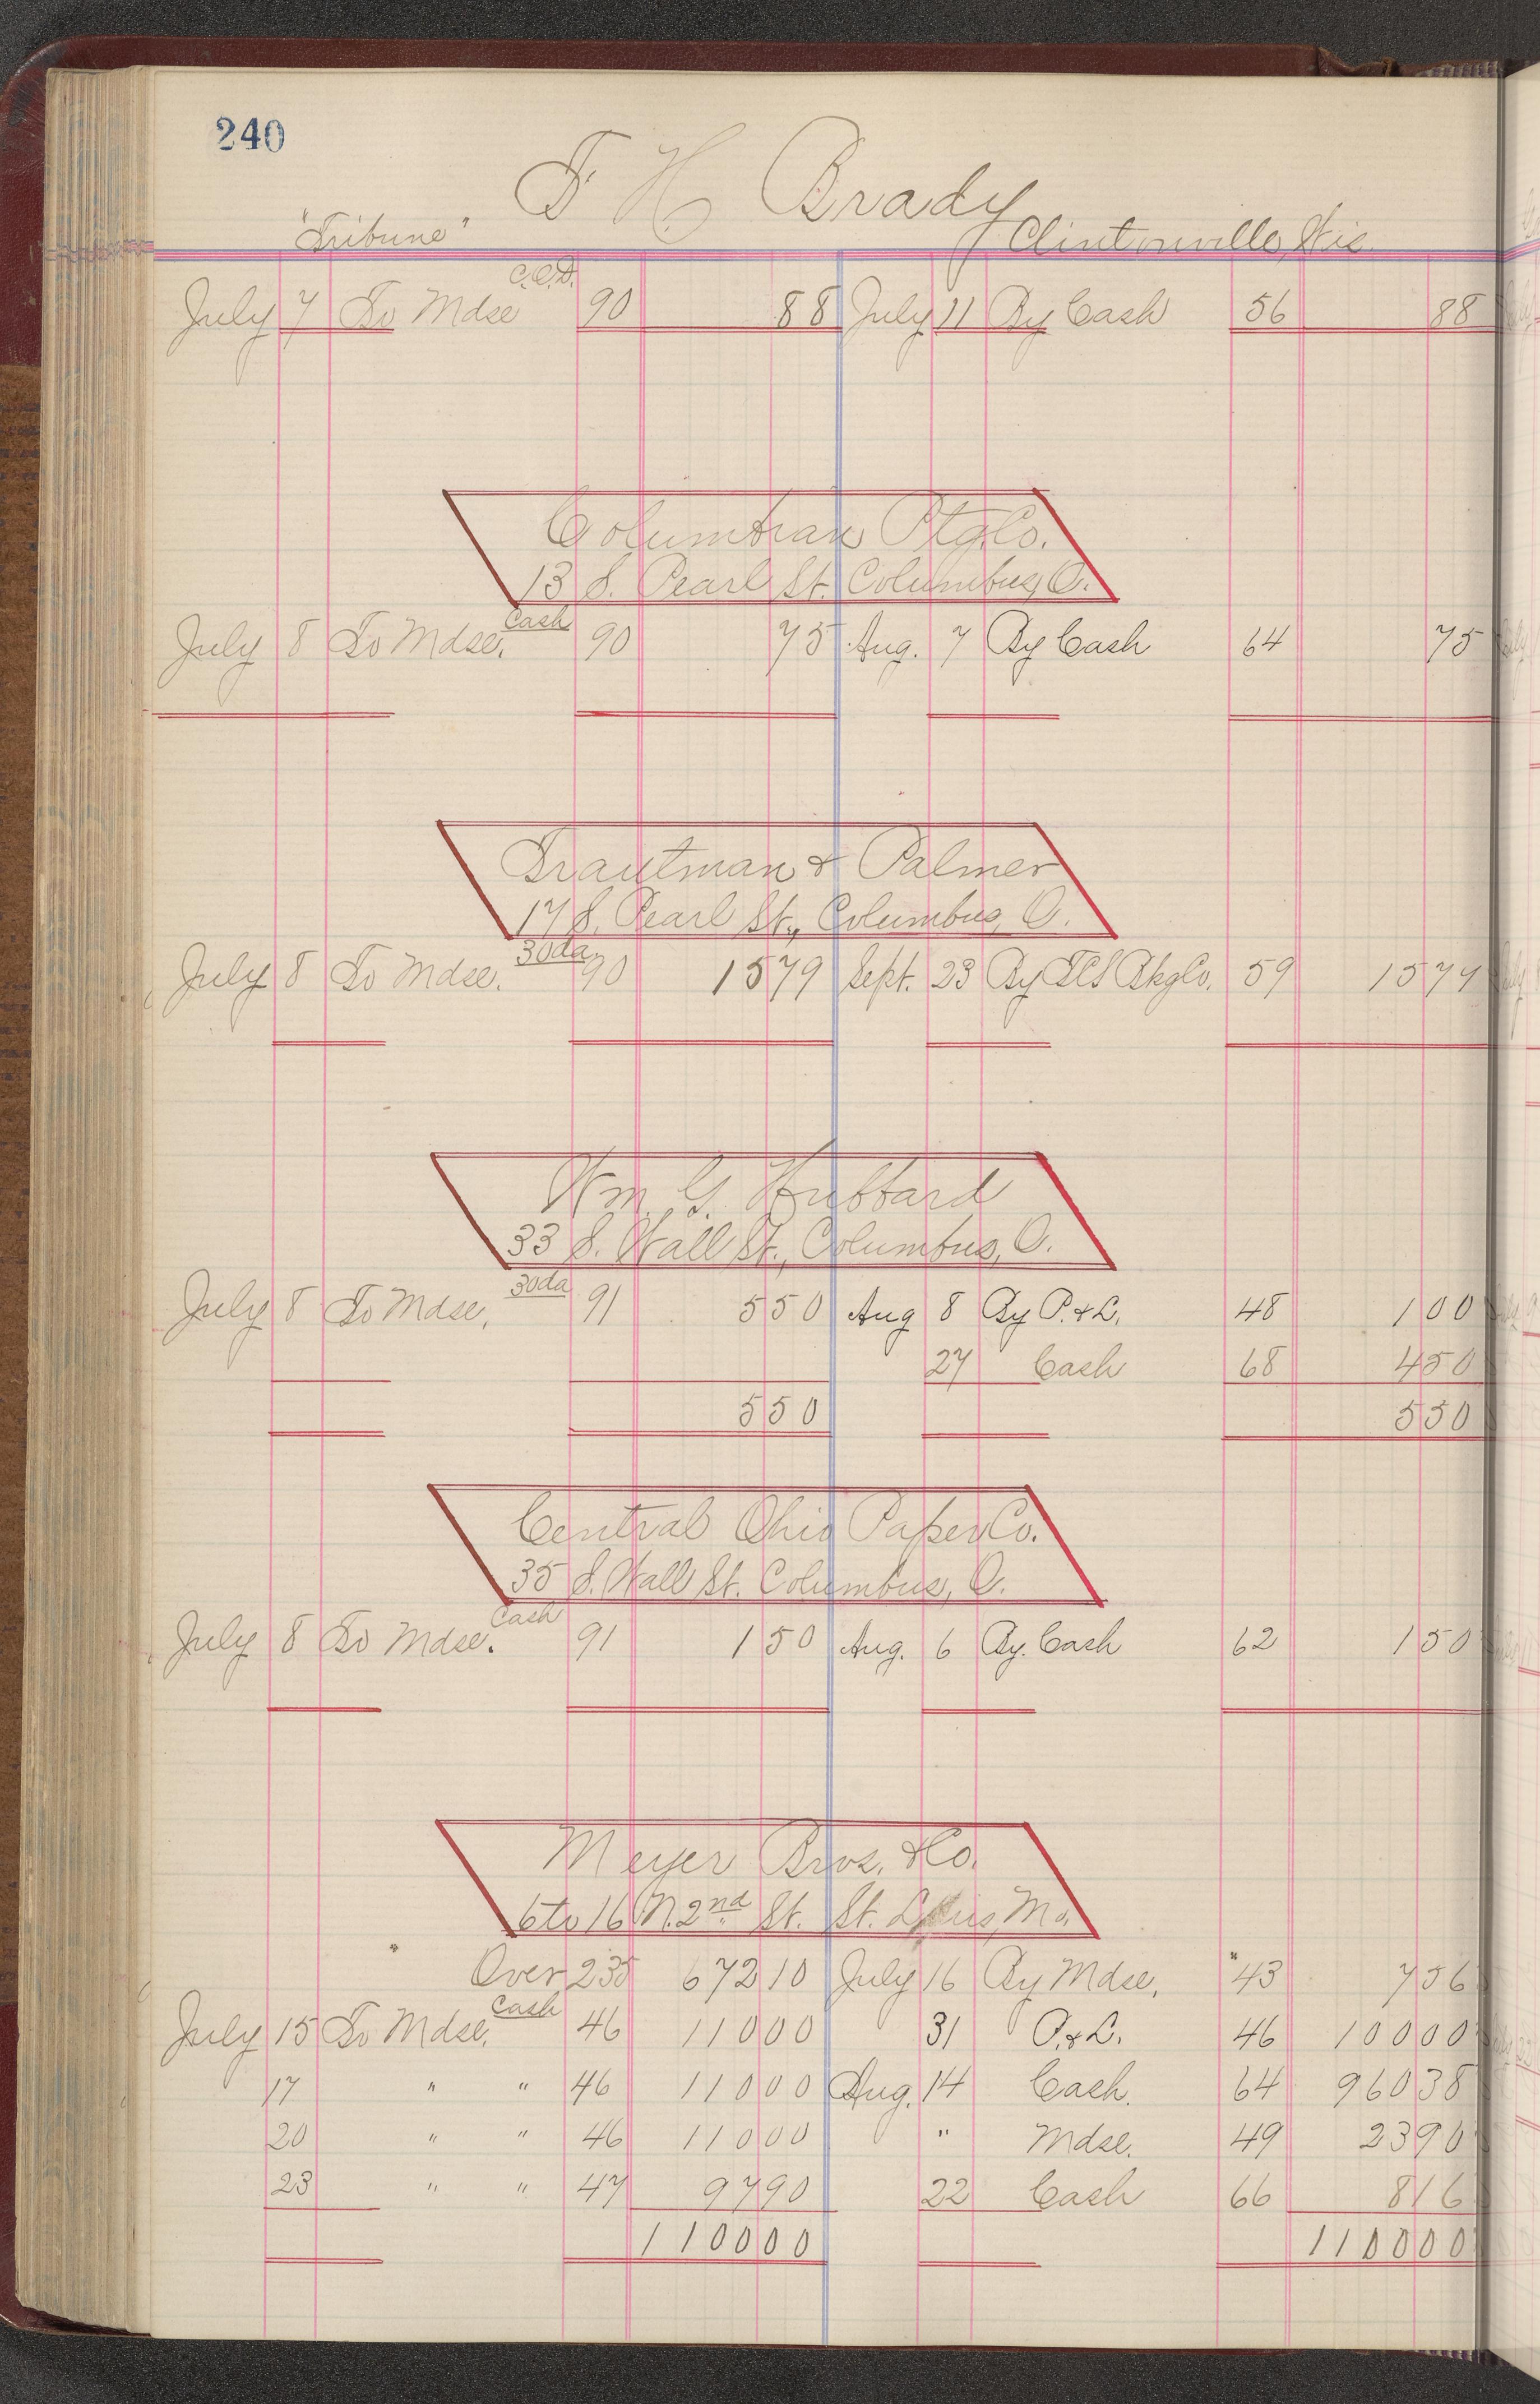 240
F H Brady
"Tribune" Clintonville, Wis.
July 7 To Mdse C.O.D. 90 88 July 11 By Cash 56 88
Columbian Ptg. Co.
13 S. Pearl St. Columbus, O.
July 8 To Mdse. Cash 90 75 Aug. 7 By Cash 64 75
Trautman & Palmer
17 S. Pearl St., Columbus, O.
July 8 To Mdse. 30da. 90 1579 Sept. 23 By 59 1579
Wm. G. Hubbard
33 S. Wall St., Columbus, O.
July 8 To Mdse. 30da 91 550 Aug 8 By P. & L. 48 100
27 Cash 68 450
550 550
Central Ohio Paper Co.
35 S. Wall St. Columbus, O.
July 8 To Mdse. Cash 91 150 Aug. 6 By Cash 62 150
Meyer Bros. & Co.
6 to 16 N. 2nd St. St. Louis, Mo.
Over 235 67210 July 16 By Mdse. 43 756
July 15 To Mdse. Cash 46 11000 31 P. & L. 46 10000
17 " " 46 11000 Aug. 14 Cash. 64 96038
20 " " 46 11000 " Mdse. 49 2390
23 " " 47 9790 22 Cash 66 816
110000 110000